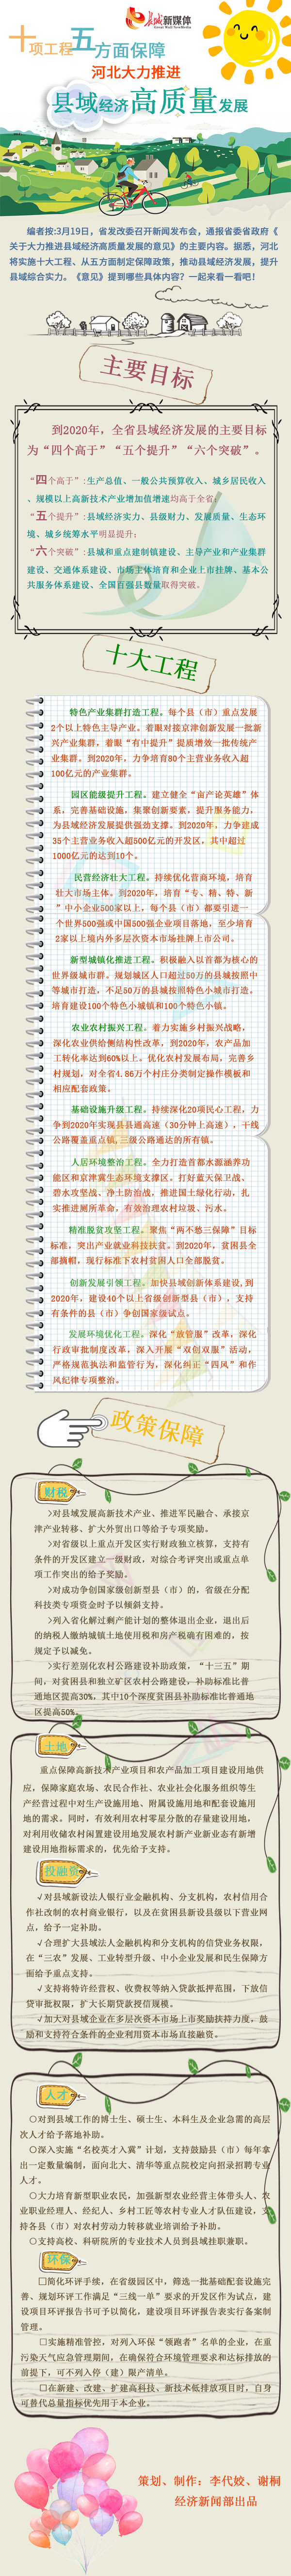 长城新媒体
Great Wall NewMedia
十项工程五方面保障
河北大力推进
县域经济高质量发展
编者按:3月19日，省发改委召开新闻发布会，通报省委省政府《
关于大力推进县域经济高质量发展的意见》的主要内容。据悉，河北
将实施十大工程、从五方面制定保障政策，推动县域经济发展，提升
县域综合实力。《意见》提到哪些具体内容？一起来看一看吧！
主要目标
到2020年，全省县域经济发展的主要目标
为“四个高于”“五个提升”“六个突破”。
“四个高于”:生产总值、一般公共预算收入、城乡居民收入
、规模以上高新技术产业增加值增速均高于全省;
“五个提升”:县域经济实力、县级财力、发展质量、生态环
境、城乡统筹水平明显提升;
“六个突破”:县城和重点建制镇建设、主导产业和产业集群
建设、交通体系建设、市场主体培育和企业上市挂牌、基本公
共服务体系建设、全国百强县数量取得突破。
十大工程
特色产业集群打造工程。每个县（市）重点发展
2个以上特色主导产业。着眼对接京津创新发展一批新
兴产业集群，着眼“有中提升”提质增效一批传统产
业集群。到2020年，力争培育80个主营业务收入超
100亿元的产业集群。
园区能级提升工程。建立健全“亩产论英雄”体
系，完善基础设施，集聚创新要素，提升服务能力，
为县域经济发展提供强劲支撑。到2020年，力争建成
35个主营业务收入超500亿元的开发区，其中超过
1000亿元的达到10个。
民营经济壮大工程。持续优化营商环境，培育
壮大市场主体。到2020年，培育“专、精、特、新
”中小企业500家以上，每个县（市）都要引进一
个世界500强或中国500强企业项目落地，至少培育
2家以上境内外多层次资本市场挂牌上市公司。
新型城镇化推进工程。积极融入以首都为核心的
世界级城市群。规划城区人口超过50万的县城按照中
等城市打造，不足50万的县城按照特色小城市打造。
培育建设100个特色小城镇和100个特色小镇。
农业农村振兴工程。着力实施乡村振兴战略，
深化农业供给侧结构性改革，到2020年，农产品加
工转化率达到60%以上。优化农村发展布局，完善乡
村规划，对全省4.86万个村庄分类制定操作模板和
相应配套政策。
基础设施升级工程。持续深化20项民心工程，力
争到2020年实现县县通高速（30分钟上高速），干线
公路覆盖重点镇,三级公路通达的所有镇。
人居环境整治工程。全力打造首都水源涵养功
能区和京津冀生态环境支撑区。打好蓝天保卫战、
碧水攻坚战、净土防治战，推进国土绿化行动，扎
实推进厕所革命，有效治理农村垃圾、污水。
精准脱贫攻坚工程。聚焦“两不愁三保障”目标
标准，突出产业就业科技扶贫。到2020年，贫困县全
部摘帽，现行标准下农村贫困人口全部脱贫。
创新发展引领工程。加快县域创新体系建设，到
2020年，建设40个以上省级创新型县（市），支持
有条件的县（市）争创国家级试点。
发展环境优化工程。深化“放管服”改革，深化
行政审批制度改革，深入开展“双创双服”活动，
严格规范执法和监管行为，深化纠正“四风”和作
风纪律专项整治。
政策保障
财税
>对县域发展高新技术产业、推进军民融合、承接京
津产业转移、扩大外贸出口等给予专项奖励。
>对省级以上重点开发区实行财政独立核算，支持有
条件的开发区建立一级财政，对综合考评突出或重点单
项工作突出的给予奖励。
>对成功争创国家级创新型县（市）的，省级在分配
科技类专项资金时予以倾斜支持。
>列入省化解过剩产能计划的整体退出企业，退出后
的纳税人缴纳城镇土地使用税和房产税确有困难的，按
规定予以减免。
>实行差别化农村公路建设补助政策，“十三五”期
间，对贫困县和独立矿区农村公路建设，补助标准比普
通地区提高30%，其中10个深度贫困县补助标准比普通地
区提高50%。
土地
重点保障高新技术产业项目和农产品加工项目建设用地供
应，保障家庭农场、农民合作社、农业社会化服务组织等生
产经营过程中对生产设施用地、附属设施用地和配套设施用
地的需求。同时，有效利用农村零星分散的存量建设用地，
对利用收储农村闲置建设用地发展农村新产业新业态有新增
建设用地指标需求的，优先给予支持。
投融资
√对县域新设法人银行业金融机构、分支机构，农村信用合
作社改制的农村商业银行，以及在贫困县新设县级以下营业网
点，给予一定补助。
√合理扩大县域法人金融机构和分支机构的信贷业务权限，
在“三农”发展、工业转型升级、中小企业发展和民生保障方
面给予重点支持。
√支持将特许经营权、收费权等纳入贷款抵押范围，下放信
贷审批权限，扩大长期贷款授信规模。
√加大对县域企业在多层次资本市场上市奖励扶持力度，鼓
励和支持符合条件的企业利用资本市场直接融资。
人才
○对到县域工作的博士生、硕士生、本科生及企业急需的高层
次人才给予落地补助。
○深入实施“名校英才入冀”计划，支持鼓励县（市）每年拿
出一定数量编制，面向北大、清华等重点院校定向招录招聘专业
人才。
○大力培育新型职业农民，加强新型农业经营主体带头人、农
业职业经理人、经纪人、乡村工匠等农村专业人才队伍建设，支
持各县（市）对农村劳动力转移就业培训给予补助。
○支持高校、科研院所的专业技术人员到县域挂职兼职。
环保
□简化环评手续，在省级园区中，筛选一批基础配套设施完
善、规划环评工作满足“三线一单”要求的开发区作为试点，建
设项目环评报告书可予以简化，建设项目环评报告表实行备案制
管理。
□实施精准管控，对列入环保“领跑者”名单的企业，在重
污染天气应急管理期间，在确保符合环境管理要求和达标排放的
前提下，可不列入停（建）限产清单。
□在新建、改建、扩建高科技、新技术低排放项目时，自身
可替代总量指标优先用于本企业。
策划、制作：李代姣、谢桐
经济新闻部出品